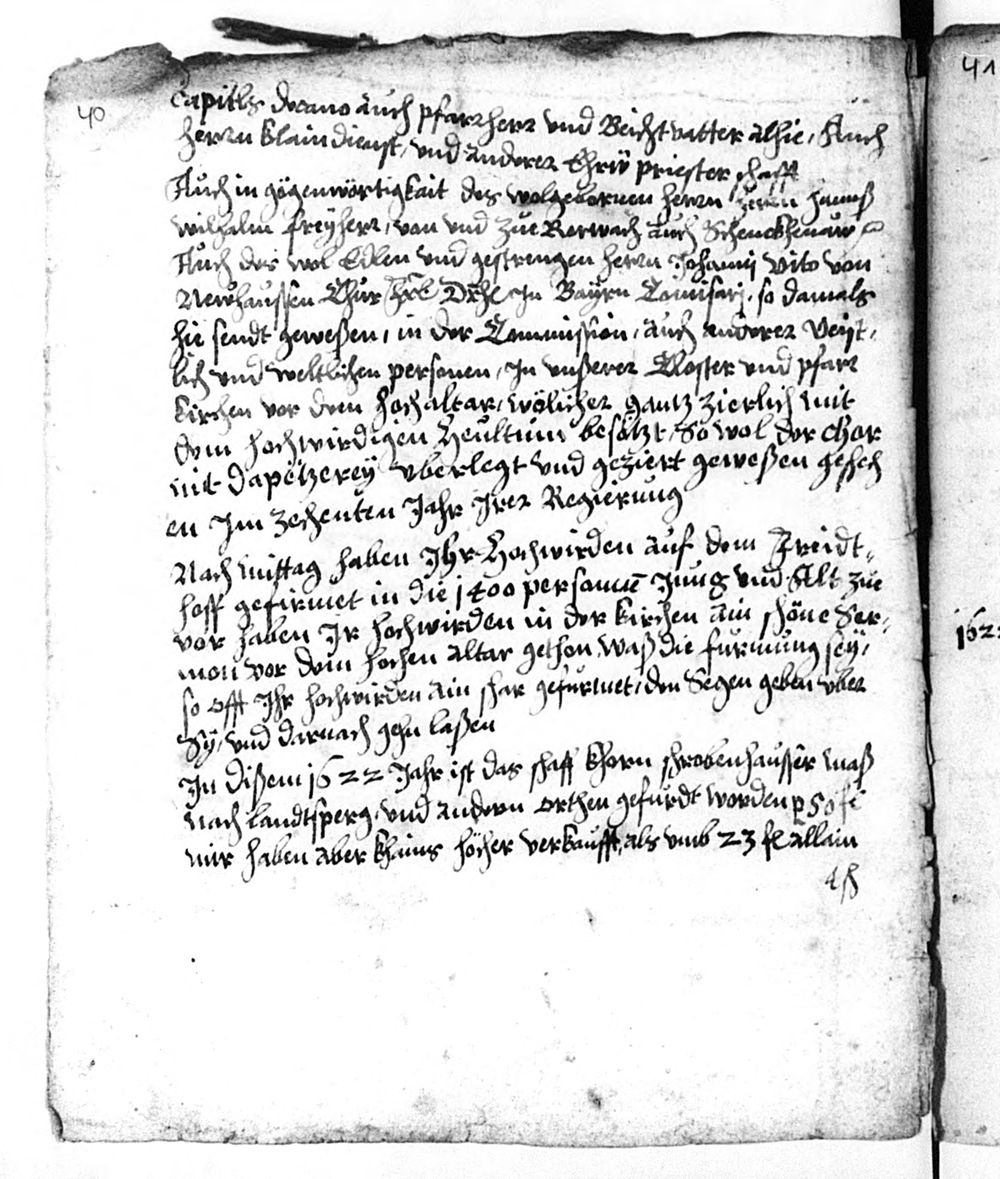 40
Capitls Decano auch pfarrherr und Beichtvatter alhie, Auch
herrn Klaindienst, und anderer Ehrw priesterschafft
Auch in gögenwörtigkait des wolgebornen herrn herrn hannß
wilhalm freyherr, von und zue Rorwach auch Schenckhenaw
Auch des wol Edlen und gestrengen herrn Johanni Vito von
Newhaussen Chur in Bayrn Comisarj, so damals
hie sendt geweßen, in der Commission, auch anderer Geist,
lich und weltlichen personen, In unßerer Closter und pfarr
kirchen vor dem hochaltar, wölicher gantz zierlich mit
dem hochwirdigen heultum besötzt, So wol der chor
mit dapetzerey uberlegt und geziert geweßen gescheh
en Im zechenten Jahr Irer Regierung
Nach mittag haben Ihr Hochwirden auf dem Freidt,,
hoff gefirmet in die 1400 personen Jung und Alt zue
vor haben Ir hochwirden in der kirchen ain schöne Ser,,
mon vor dem hochen altar gethon, waß die furmung sey,
so offt Ihr hochwirden ain schar gefurmet, den Segen geben uber
Sy, und darnach gehn laßen
In dißem 1622 Jahr ist das schaff khorn schrobenhausser maß
nach landtsperg, und andern orthen gefürdt worden p 50 fl
mir haben aber khains höcher verkaufft, als umb 23 fl allain
41
162